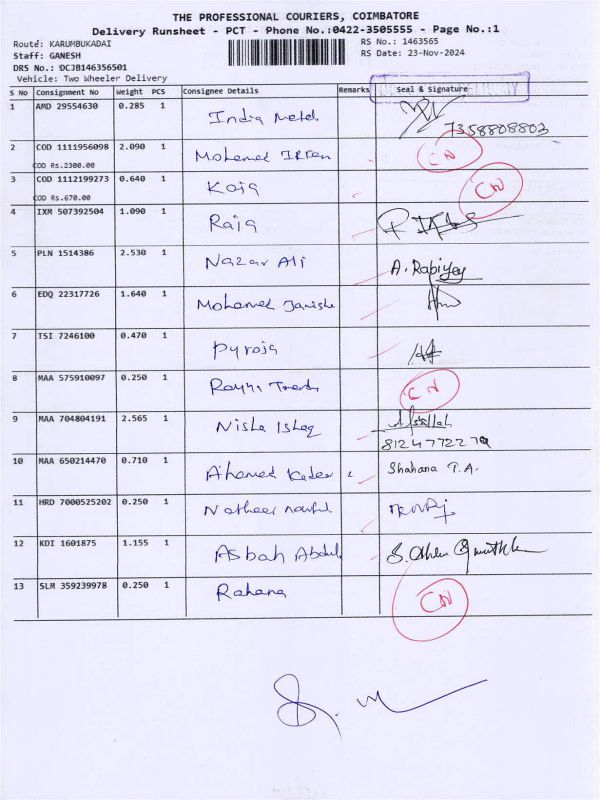 THE PROFESSIONAL COURIERS, COIMBATORE
Delivery Runsheet - PCT - Phone No.:0422-3505555 - Page No.:1
Route: KARUMBUKADAI RS No.: 1463565
Staff: GANESH RS Date: 23-Nov-2024
DRS No.: DCJB146356501
Vehicle: Two Wheeler Delivery
S No Consignment No Weight PCS Consignee Details Remarks Seal & Signature
1 AMD 29554630 0.285 1 India Metal
7358808802
2 COD 1111956098 2.090 1 Mohamed Irfan CN
COD Rs.2300.00
3 COD 1112199273 0.640 1 Kaja CN
COD Rs.670.00
4 IXM 507392504 1.090 1 Raja
5 PLN 1514386 2.530 1 Nazar Ali A. Rabiyay
6 EDQ 22317726 1.640 1 Mohamed
7 TSI 7246100 0.470 1 Pyroja
8 MAA 575910097 0.250 1 CN
9 MAA 704804191 2.565 1 Nisha Ishaq
8124772279
10 MAA 650214470 0.710 1 Ahamed Kader Shahana T.A.
11 HRD 7000525202 0.250 1 Natheer
12 KDI 1601875 1.155 1 Asbah Abdul
13 SLM 359239978 0.250 1 Rahana CN